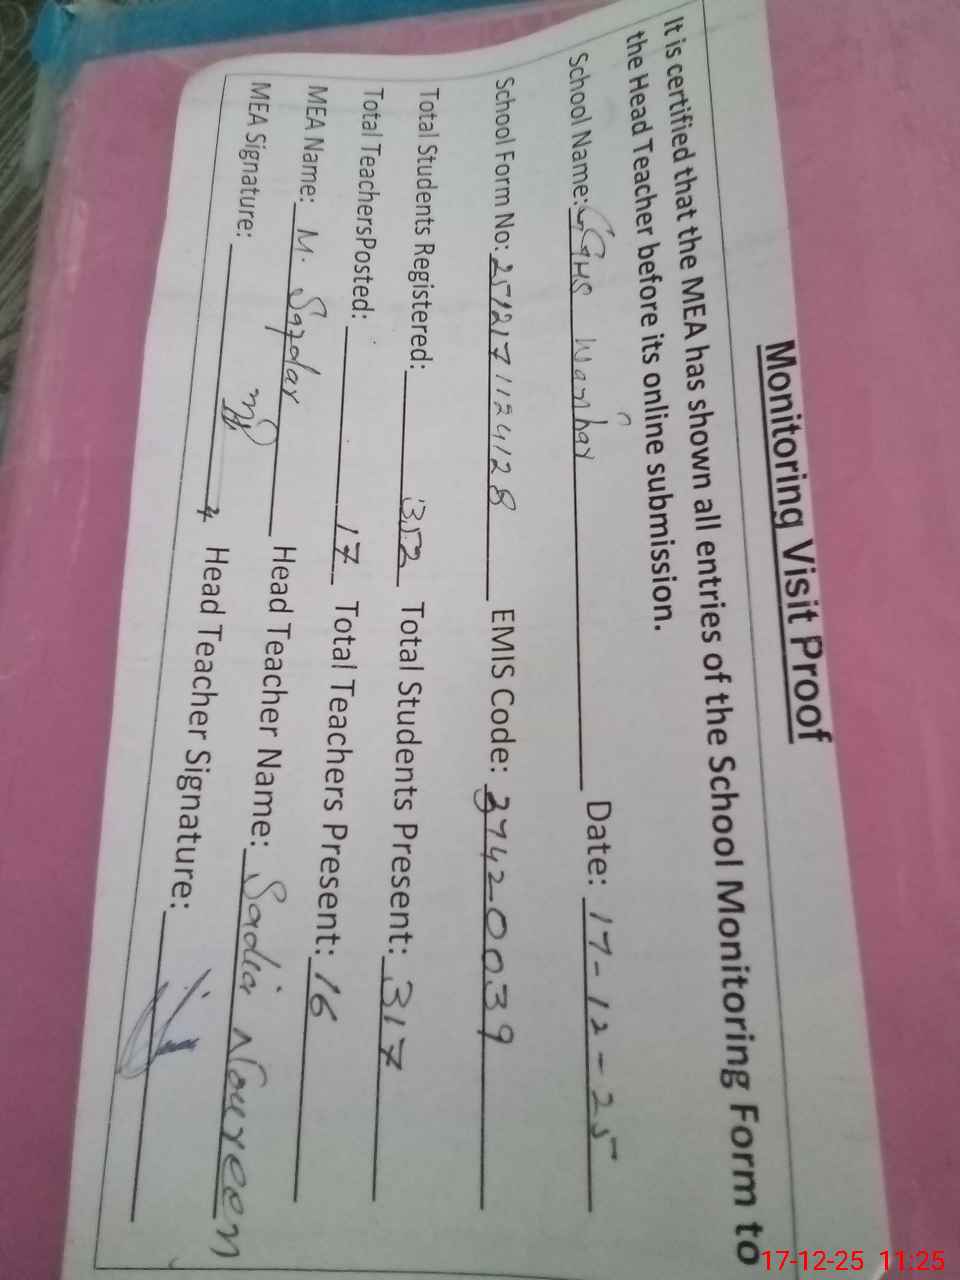 Monitoring Visit Proof
It is certified that the MEA has shown all entries of the School Monitoring Form to
the Head Teacher before its online submission.
School Name: GGHS Wanhar Date: 17-12-25
School Form No: 2512171124128 EMIS Code: 37420039
Total Students Registered: 352 Total Students Present: 317
Total TeachersPosted: 17 Total Teachers Present: 16
MEA Name: M. Safdar Head Teacher Name: Sadia Noureen
MEA Signature: Head Teacher Signature:
17-12-25 11:25